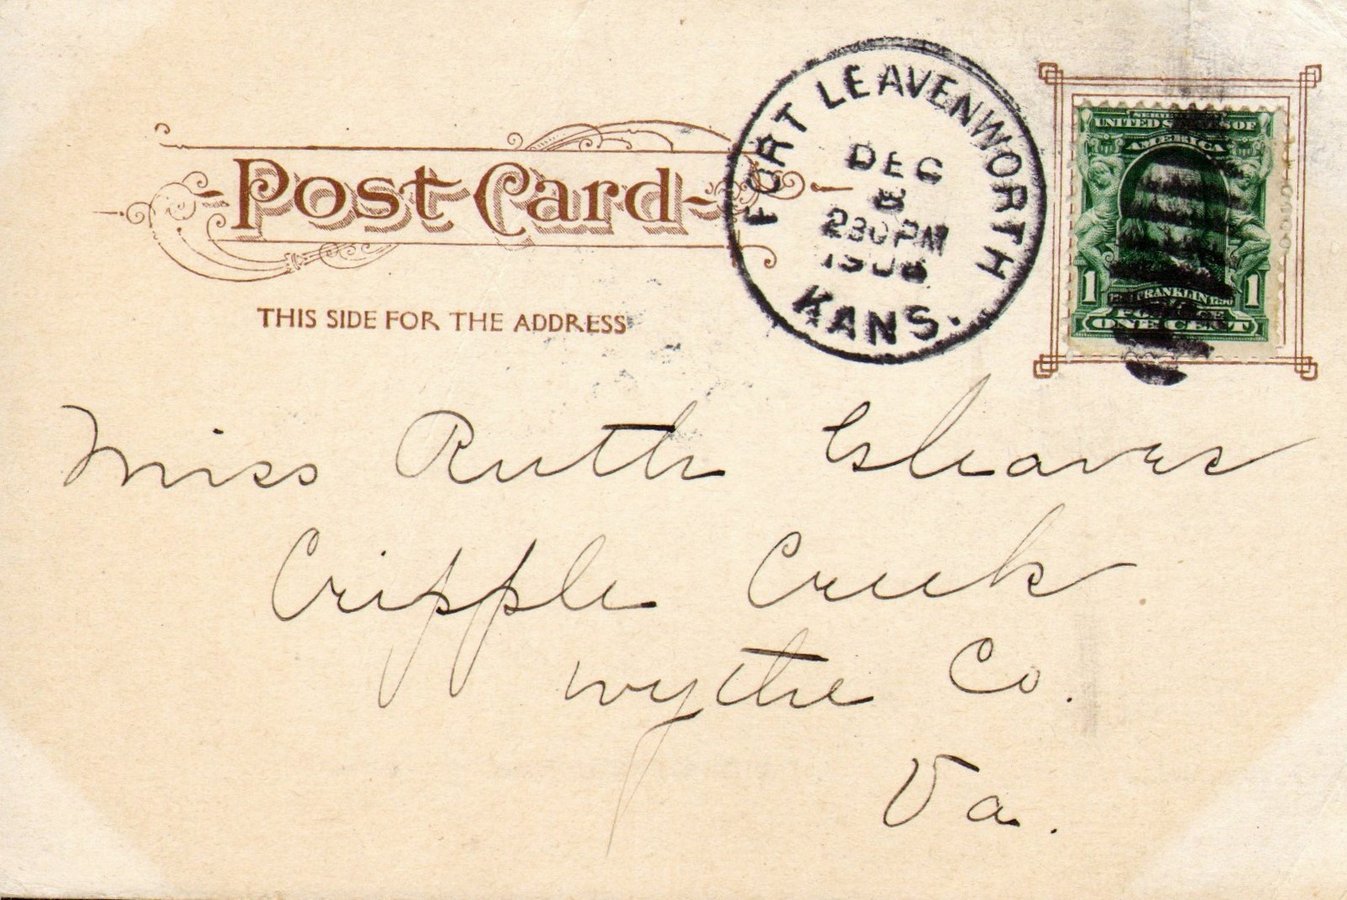 Post Card
THIS SIDE FOR THE ADDRESS
FORT LEAVENWORTH
DEC
8
230 PM
KANS.
SERIES
UNITED STATES OF
AMERICA
1 FRANKLIN 1
POSTAGE
ONE CENT
Miss Ruth Gleaves
Cripple Creek
Wythe Co.
Va.